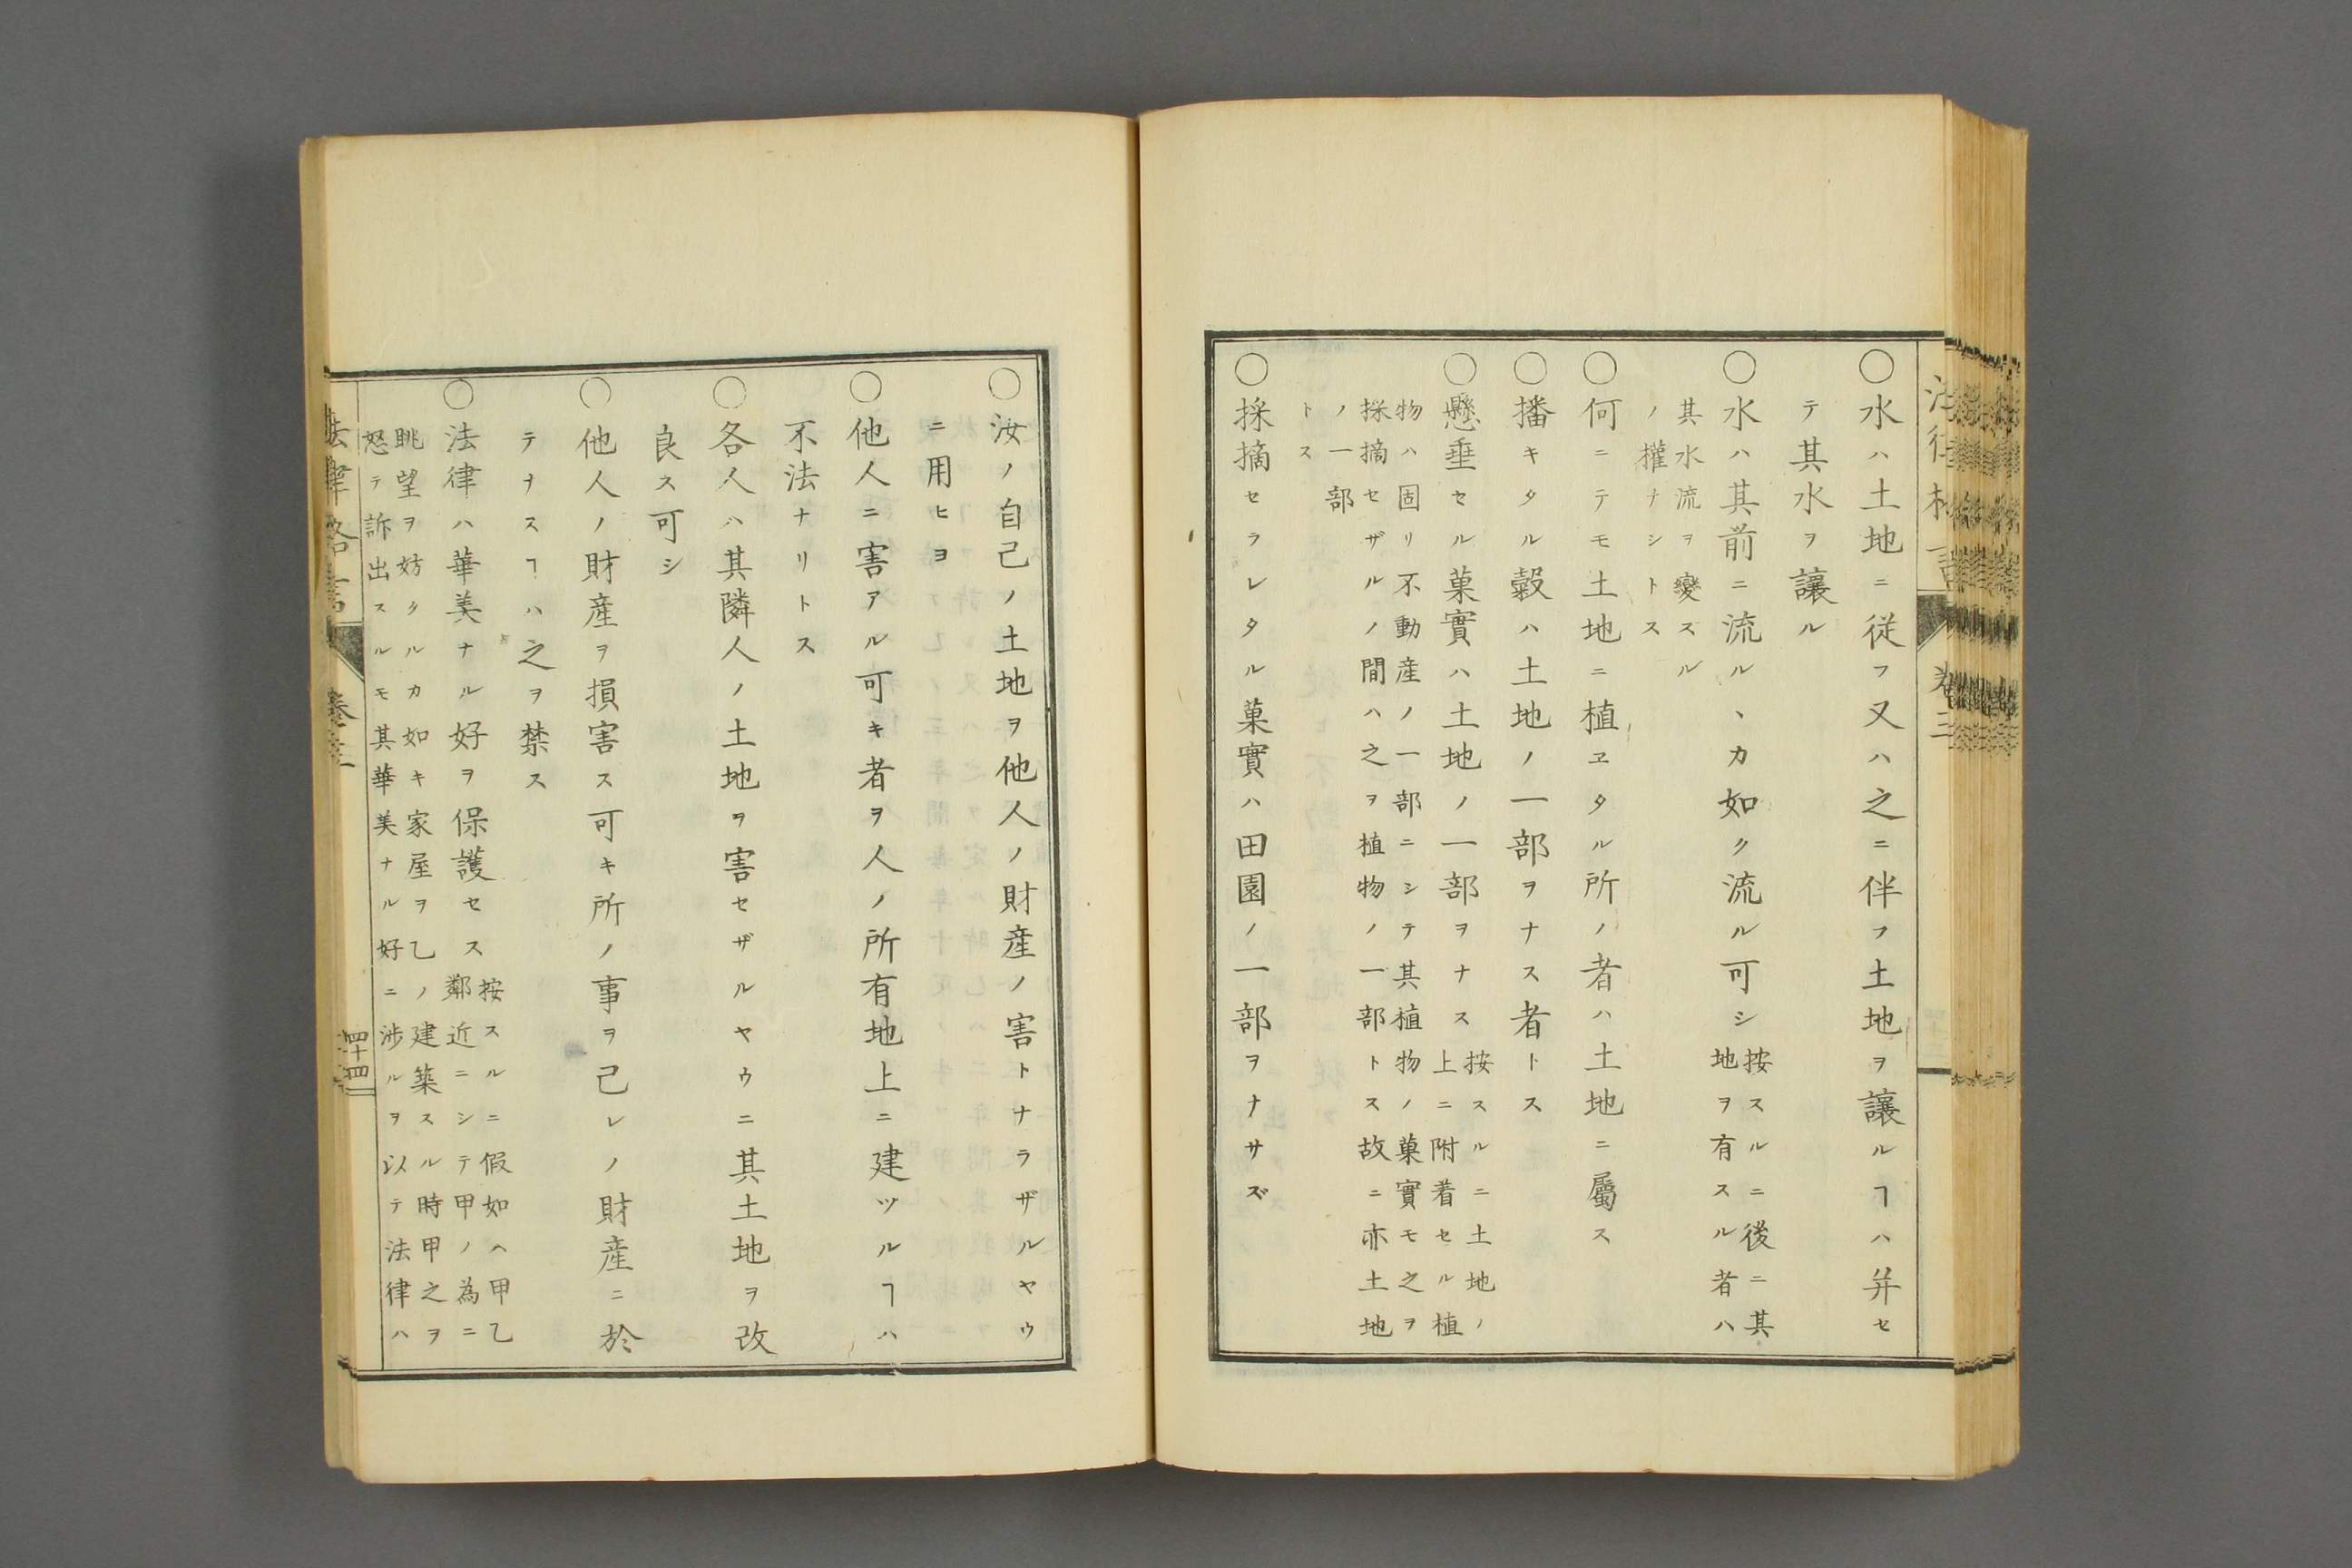 ○水ハ土地ニ従フ又ハ之ニ伴フ土地ヲ讓ルヿハ并セ
テ其水ヲ讓ル
○水ハ其前ニ流ルヽカ如ク流ル可シ
按スルニ後ニ其
地ヲ有スル者ハ
其水流ヲ變スル
ノ權ナシトス
○何ニテモ土地ニ植ヱタル所ノ者ハ土地ニ屬ス
○播キタル穀ハ土地ノ一部ヲナス者トス
○懸垂セル菓實ハ土地ノ一部ヲナス
按スルニ土地ノ
上ニ附着セル植
物ハ固リ不動産ノ一部ニシテ其植物ノ菓實モ之ヲ
採摘セザルノ間ハ之ヲ植物ノ一部トス故ニ亦土地
ノ一部
トス
○採摘セラレタル菓實ハ田園ノ一部ヲナサズ
○汝ノ自己ノ土地ヲ他人ノ財産ノ害トナラザルヤウ
ニ用ヒヨ
○他人ニ害アル可キ者ヲ人ノ所有地上ニ建ツルヿハ
不法ナリトス
○各人ハ其隣人ノ土地ヲ害セザルヤウニ其土地ヲ改
良ス可シ
○他人ノ財産ヲ損害ス可キ所ノ事ヲ己レノ財産ニ於
テナスヿハ之ヲ禁ス
○法律ハ華美ナル好ヲ保護セス
按スルニ假如ヘ甲乙
鄰近ニシテ甲ノ為ニ
眺望ヲ妨タルカ如キ家屋ヲ乙ノ建築スル時甲之ヲ
怒テ訴出スルモ其華美ナル好ニ渉ルヲ以テ法律ハ
法律格言
卷三
四十四